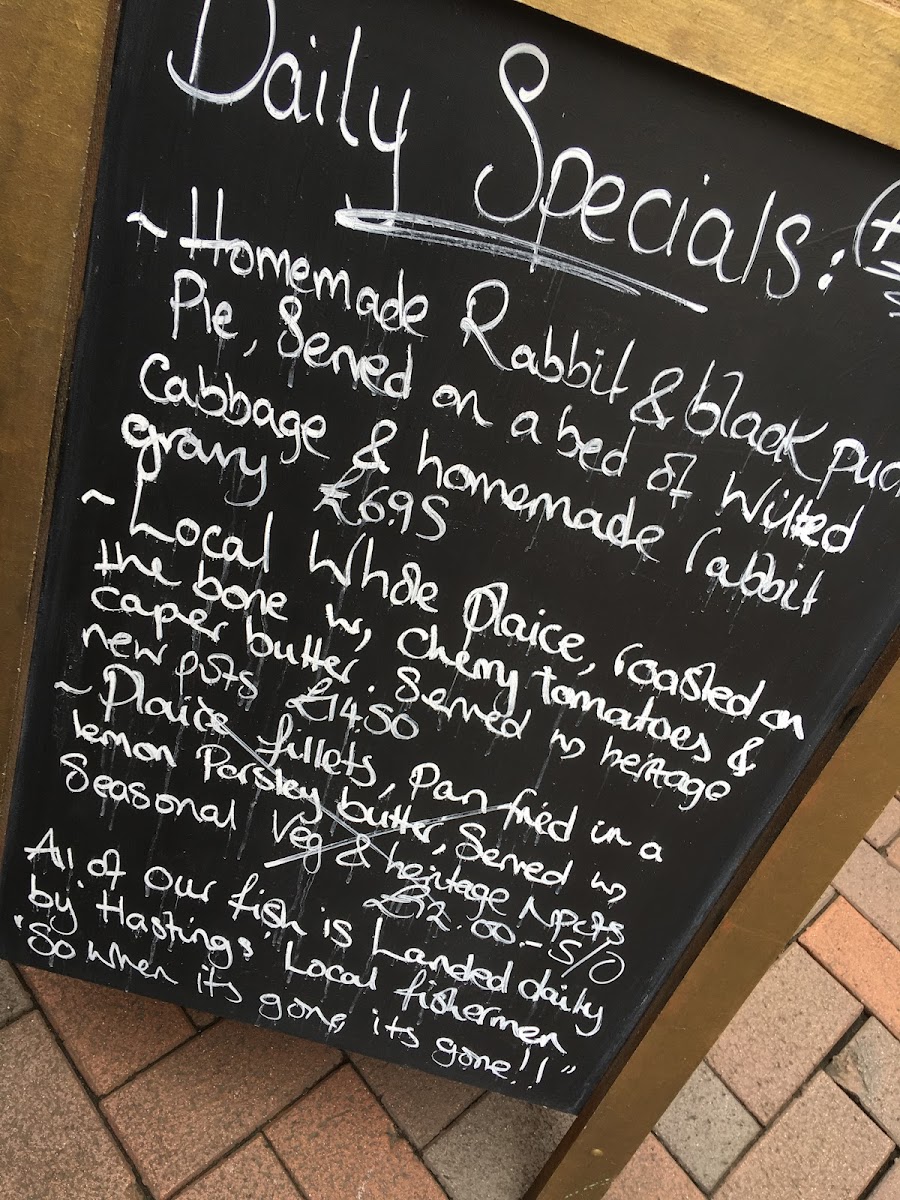 Daily Specials:
~ Homemade Rabbit & black pud
Pie, Served on a bed of Wilted
Cabbage & homemade rabbit
gravy £6.95
~ Local Whole Plaice, roasted on
the bone w, cherry tomatoes &
caper butter. Served w heritage
new pots £14.50
~ Plaice fillets, Pan fried in a
lemon Parsley butter, Served w,
Seasonal Veg & heritage Npots
£12.00 - S/O
All of our fish is Landed daily
by Hastings' Local fishermen
"So when its gone, its gone!!"